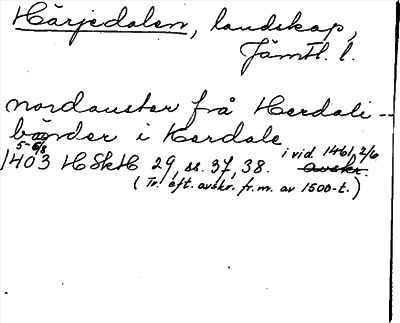 Härjedalen, landskap,
Jämtl. l.
nordauster frå Herdali-
bygder i Herdale
5-6/8 i vid. 1461, 2/6
1403 HSkH 29, ss. 37, 38. Avskr.
(Tr. eft. avskr. fr. m. av 1500-t.)